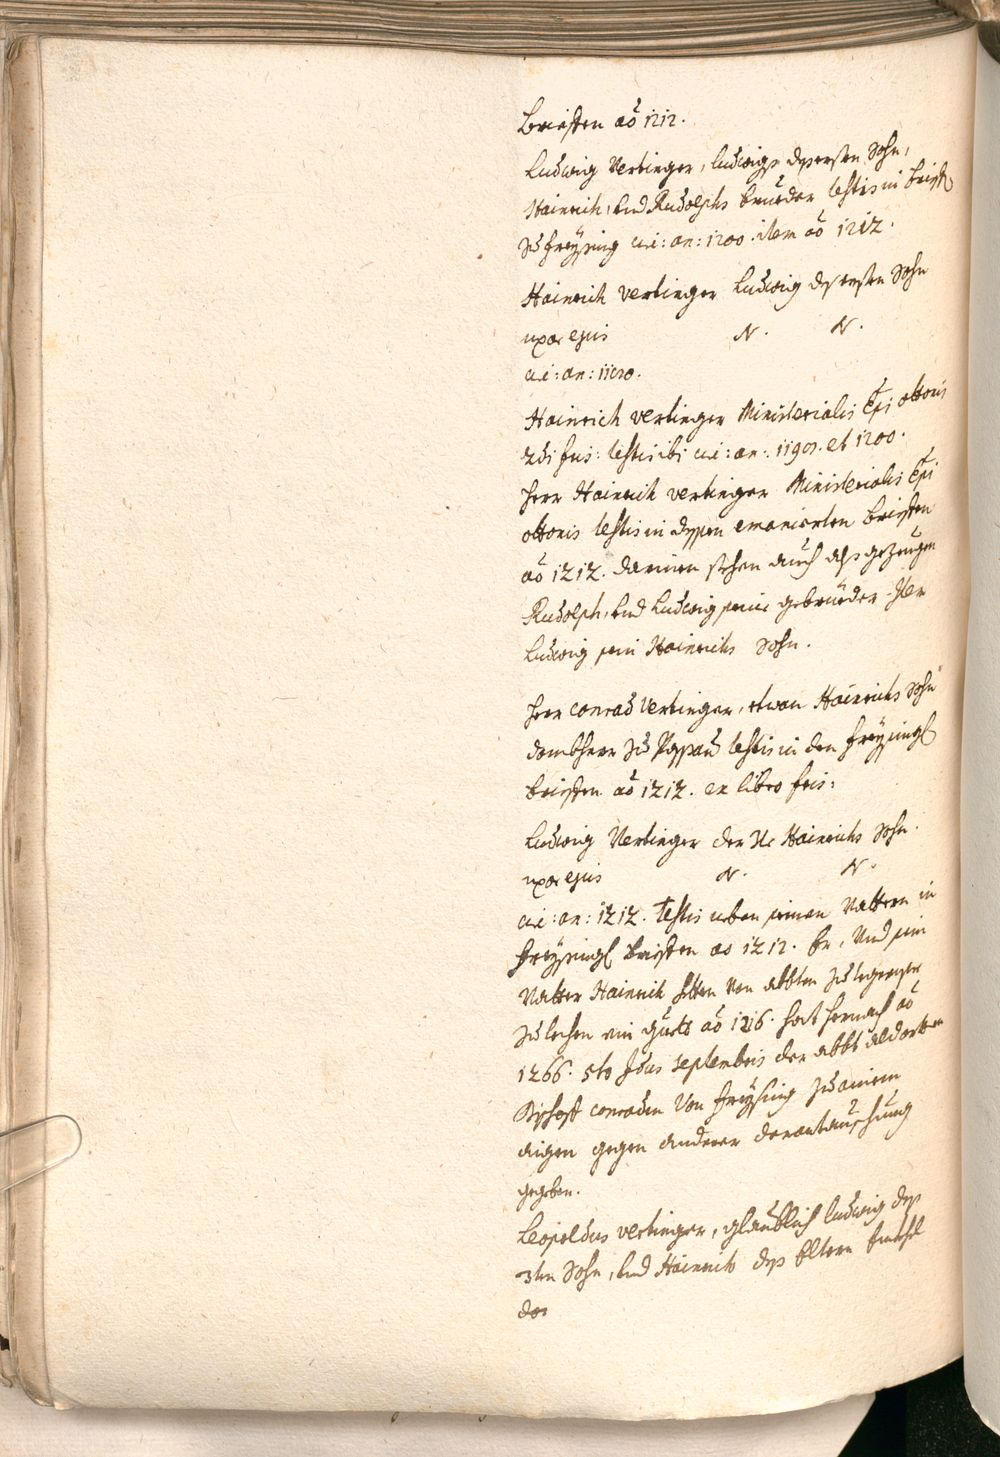 Brieffen aõ 1212.
Ludwig Verbinger, Ludwigs deß ersten Sohn,
Hainrich, und Rudolphs brueder testis in brieff
zu Freÿsing circ: an: 1200. item aõ 1212.
Hainrich verbinger Ludwig deß ersten Sohn
uxor ejus N. N.
circ: an: 1190.
Hainrich verbinger Ministerialis Epi ottonis
2di fris: testis ibi circ: an: 1190. et 1200.
Herr Hainrich verbinger Ministerialis Epi
ottonis testis in dessen emanierten brieffen
aõ 1212. darinen stehen auch alß gezeugen
Rudolph, und Ludwig seine gebrueder. Item
Ludwig sein Hainrichs Sohn.
Herr Conrad Verbinger, etwan Hainrichs Sohn
dombherr zu Passau testis in den freÿsing:
brieffen aõ 1212. ex libro fris:
Ludwig Verbinger der Hainrichs Sohn.
uxor ejus N. N.
circ: an: 1212. testis neben seinen Vattern in
freÿsing: brieffen ao 1212. Er, Und sein
Vatter Hainrich hetten Von abbten zu
zu lechen ein guett aõ 1216. hat hernach aõ
1266. 5to Idus Septembris der abbt aldorten
Bischoff Conraden Von Freÿsing zu ainem
aigen gegen anderer
gegeben.
Leopoldus verbinger, glaublich Ludwig deß
3ten Sohn, und Hainrich deß Eltern
der